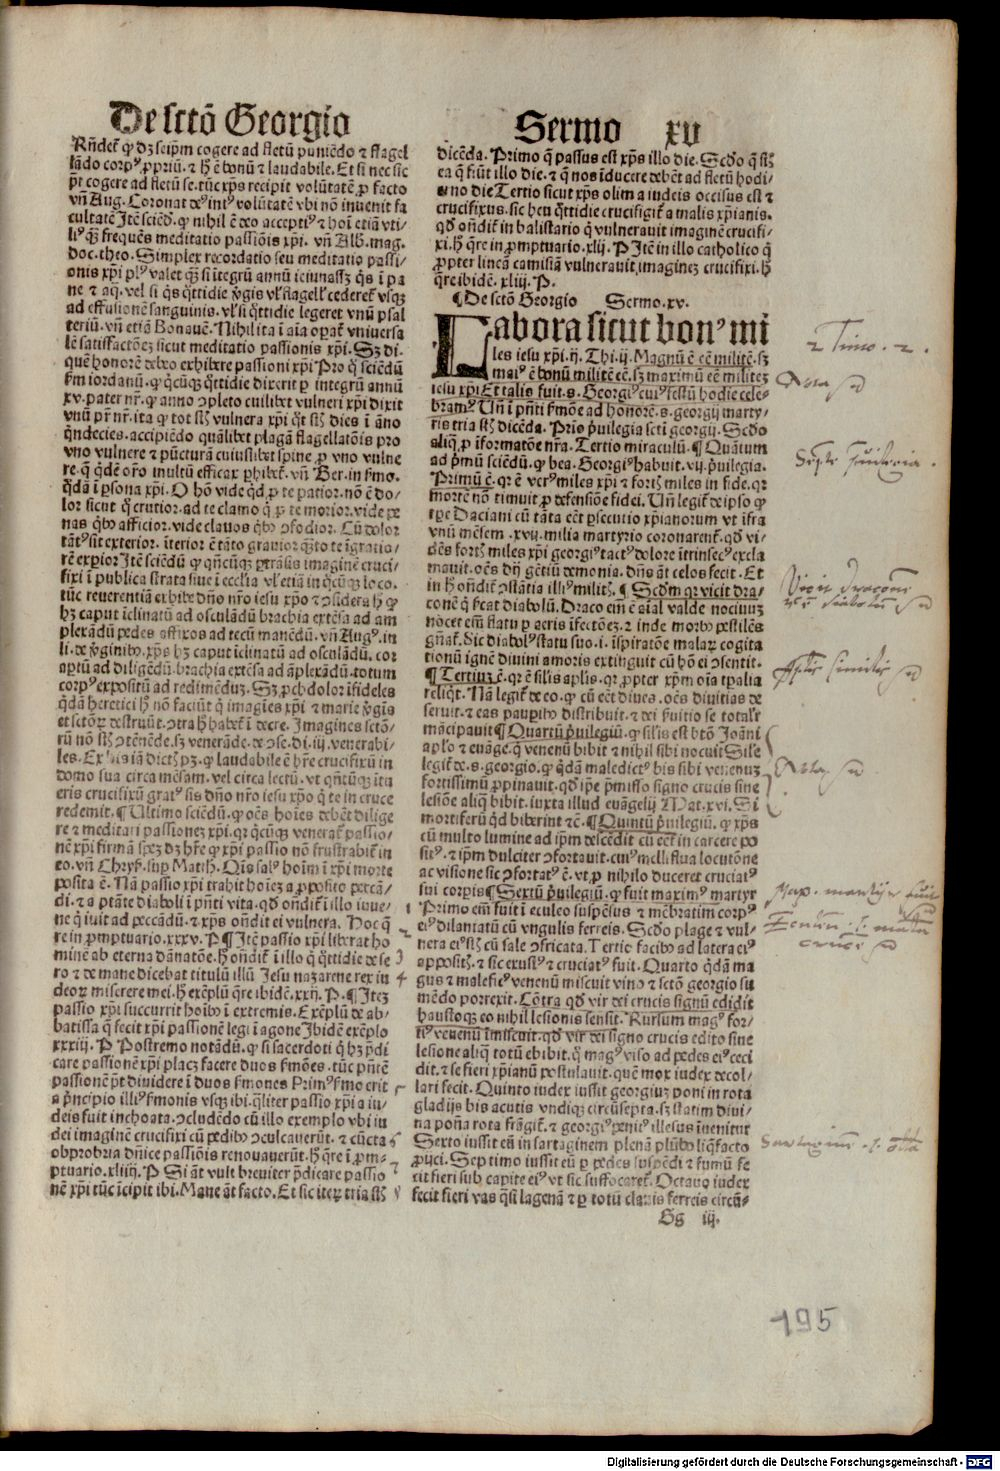 De sctō Georgio
Sermo xv
Rn̄det̄ ꝙ dꝫ seip̄m cogere ad fletū puniēdo ⁊ flagel
lādo corpꝰ ꝓpriū. ⁊ h̄ ē bonū ⁊ laudabile. Et si nec sic
p̄t cogere ad fletū se. tūc xp̄s recipit volūtatē ꝓ facto
vn̄ Aug. Coronat deꝰ intꝰ volūtatē vbi nō inuenit fa
cultatē Itē sciēd. ꝙ nihil ē deo acceptiꝰ ⁊ hoī etiā vti/
liꝰ qꝫ frequēs meditatio passiōis xp̄i. vn̄ Alb. mag.
doc. theo. Simplex recordatio seu meditatio passi/
onis xp̄i plꝰ valet qꝫ si ītegrū annū ieiunassꝫ q̄s ī pa
ne ⁊ aq̄. vel si q̄s q̄ttidie ꝟgis vl̓ flagell̓ cederet̄ vsqꝫ
ad effusionē sanguinis. vl̓ si q̄ttidie legeret vnū psal
teriū. vn̄ etiā Bonauē. Nihil ita ī aīa opat̄ vniuersa
lē satisfactōeꝫ sicut meditatio passionis xp̄i. Sꝫ di-
quē honorē debeo exhibere passioni xp̄i Pro q̄ sciēdū
fm iordanū. ꝙ q̄cūqꝫ q̄ttidie dixerit ꝑ integrū annū
xv. pater nr̄. ꝙ anno ↄpleto cuilibet vulneri xp̄i dixit
vnū pr̄ nr̄. ita ꝙ tot st̄ vulnera xp̄i q̄t st̄ dies ī āno
q̄ndecies. accipiēdo qualibet plagā flagellatōis pro
vno vulnere ⁊ pūcturā cuiuslibet spine ꝓ vno vulne
re. q̄ q̄dē or̄o multū efficax ꝑhibet̄. vn̄ Ber. in f̄mo.
q̄dā ī ꝑsona xp̄i. O hō vide q̄d ꝓ te patior. nō ē do/
lor sicut q̄ crutior. ad te clamo q̄ ꝓ te morior. vide pe
nas q̄bꝰ afficior. vide clauos q̄bꝰ ↄfodior. Cū dolor
tātꝰ sit exterior. īterior ē tāto grauior q̄to te īgratio/
rē exꝑior Itē sciēdū ꝙ q̄ncūqꝫ ꝑtrālis imaginē cruci/
fixi ī publica strata siue ī ecclīa vl̓ etiā in q̄cūqꝫ loco.
tūc reuerentiā exhibe dn̄o nr̄o iesu xp̄o ⁊ ↄsidera h̄ ꝙ
hꝫ caput īclinatū ad osculādū brachia extēsa ad am
plexādū pedes affixos ad tecū manēdū. vn̄ Augꝰ. in
li. de ꝟginibꝰ. xp̄s hꝫ caput īclinatū ad osculādū. cor
aꝑtū ad diligēdū. brachia extēsa ad āplexādū. totum
corpꝰ expositū ad redimēduꝫ. Sꝫ ꝓch dolor ifideles
q̄dā heretici h̄ nō faciūt q̄ imagīes xp̄i ⁊ marie ꝟgīs
et sctōꝝ destruūt. ↄtra h̄ habet̄ ī decre. Imagines sctō/
rū nō st̄ ↄtēnēde. sꝫ venerāde. de ↄse. di. iij. venerabi/
les. Ex his iā dictꝭ pꝫ. ꝙ laudabile ē hr̄e crucifixū in
domo sua circa mēsam. vel circa lectū. vt q̄ntūqꝫ ita
eris crucifixū gratꝰ sis dn̄o nr̄o iesu xp̄o q̄ te in cruce
redemit. ¶ Ultimo sciēdū. ꝙ oēs hoīes debēt dilige
re ⁊ meditari passioneꝫ xp̄i. qꝛ q̄cūqꝫ venerat̄ passio/
nē xp̄i firmā speꝫ dꝫ hr̄e ꝙ xp̄i passio nō frustrabit̄ in
eo. vn̄ Chryꝭ. suꝑ Math. Oīs salꝰ hoīm ī xp̄i morte
posita ē. Nā passio xp̄i trahit hoīeꝫ a ꝓposito peccā/
di. ⁊ a ptāte diaboli ī pn̄ti vita. qd̓ on̄dit̄ ī illo iuue/
ne q̄ iuit ad peccādū. ⁊ xp̄s on̄dit ei vulnera. Hoc q̄
re in ꝓmptuario. xxxv. P ¶ Itē passio xp̄i liberat ho
minē ab eterna dānatōe. hon̄dit̄ ī illo q̄ q̄ttidie de se
ro ⁊ de mane dicebat titulū illū Jesu nazarene rex iu
deoꝝ miserere mei. h̄ exēplū q̄re ibidē. xxij. P. ¶ Iteꝫ
passio xp̄i succurrit hoībꝰ ī extremis. Exēplū de ab/
batissa q̄ fecit xp̄i passionē legi ī agone Ibidē exēplo
xxxiij. P Postremo notādū. ꝙ si sacerdoti q̄ hꝫ p̄di
care passionē xp̄i placꝫ facere duos f̄mōes. tūc pn̄tē
passionē p̄t diuidere ī duos f̄mones Primꝰ f̄mo erit
a p̄ncipio illiꝰ f̄monis vsqꝫ ibi. q̄liter passio xp̄i a iu/
deis fuit inchoata. ↄcludēdo cū illo exemplo vbi iu
dei imaginē crucifixi cū pedibꝰ ↄculcauerūt. ⁊ cūcta
obprobria dn̄ice passiōis renouauerūt. h̄ q̄re ī ꝓm-
ptuario. xliiij. P Si āt vult breuiter p̄dicare passio
nē xp̄i tūc īcipit ibi. Mane āt facto. Et sic iteꝝ tria st̄
dicēda. Primo q̄ passus est xp̄s illo die. Scd̓o q̄ st̄
ea q̄ fiūt illo die. ⁊ q̄ nos īducere debēt ad fletū hodi/
erno die Tertio sicut xp̄s olim a iudeis occisus est ⁊
crucifixus. sic heu q̄ttidie crucifigit̄ a malis xp̄ianis.
qd̓ on̄dit̄ in balistario q̄ vulnerauit imaginē crucifi/
xi. h̄ q̄re in ꝓmptuario. xlij. P Itē in illo catholico q̄
ꝓpter lineā camisiā vulnerauit imagineꝫ crucifixi. h̄
q̄re ibidē. xliij. P.
¶ De sctō Georgio Sermo. xv.
Labora sicut bonꝰ mi
les iesu xp̄i. ij. Thi. ij. Magnū ē eē militē. sꝫ
maiꝰ ē bonū militē eē. sꝫ maximū eē militeꝫ
iesu xp̄i Et talis fuit. s. Georgiꝰ cuiꝰ festū hodie cele/
bramꝰ. Un̄ ī pn̄ti f̄mōe ad honorē. s. georgij marty/
ris tria st̄ dicēda. Prīs p̄uilegia scti georgij. Scd̓o
aliq̄ ꝓ īformatōe nr̄a. Tertio miraculū. ¶ Quātum
ad pͥmū sciēdū. ꝙ bea. Georgiꝰ habuit. vij. p̄uilegia.
Primū ē. qꝛ ē verꝰ miles xp̄i ⁊ fortꝭ miles in fide. qꝛ
mortē nō timuit ꝓ defensiōe fidei. Un̄ legit̄ de ipso ꝙ
tp̄e Daciani cū tāta eēt ꝑsecutio xp̄ianorum vt īfra
vnū mēsem. xvij. milia martyrio coronarent̄. qd̓ vi/
dēs fortꝭ miles xp̄i georgiꝰ tactꝰ dolore ītrinsecꝰ excla
mauit. oēs dij gētiū demonia. dn̄s āt celos fecit. Et
in h̄ on̄dit̄ ↄstātia illiꝰ militꝭ. ¶ Scd̓m qꝛ vicit dra/
conē q̄ ſcat diabolū. Draco em̄ ē aīal valde nociuuꝫ
nocet em̄ flatu ꝑ aeris īfectōeꝫ. ⁊ inde morbꝰ pestilēs
gn̄at̄. Sic diabolꝰ statu suo. i. īspiratōe malaꝝ cogita
tionū ignē diuini amoris extinguit cū hō ei ↄsentit.
¶ Tertiuꝫ ē. qꝛ ē silis aplis. qꝛ ꝓpter xp̄m oīa tꝑalia
reliq̄t. Nā legit̄ de eo. ꝙ cū eēt diues. oēs diuitias de
seruit. ⁊ eas pauꝑibꝰ distribuit. ⁊ dei f̄uitio se totalr̄
mācipauit ¶ Quartū p̄uilegiū. ꝙ silis est bt̄o Joāni
aplo ⁊ euāge. q̄ venenū bibit ⁊ nihil sibi nocuit Sile
legit̄ de. s. georgio. ꝙ q̄dā maledictꝰ bis sibi venenuꝫ
fortissimū ꝓpinauit. qd̓ ip̄e p̄misso signo crucis sine
lesiōe aliq̄ bibit. iuxta illud euāgelij Mat. xvi. Si
mortiferū qd̓ biberint ⁊c̄. ¶ Quintū p̄uilegiū. ꝙ xp̄s
cū multo lumine ad ip̄m descēdit cū eēt̄ in carcere po
sitꝰ. ⁊ ip̄m dulciter ↄfortauit. cuiꝰ melliflua locutōne
ac visione sic ↄfortatꝰ ē. vt ꝓ nihilo duceret cruciatꝰ
sui corꝑis ¶ Sextū p̄uilegiū. ꝙ fuit maximꝰ martyr
Primo em̄ fuit ī eculeo suspēsus ⁊ mēbratim corpꝰ
eiꝰ dilantatū cū vngulis ferreis. Scd̓o plage ⁊ vul-
nera eiꝰ st̄ cū sale ↄfricata. Tertio facibꝰ ad latera eiꝰ
appositꝭ. ⁊ sic exustꝰ ⁊ cruciatꝰ fuit. Quarto q̄dā ma
gus ⁊ maleficꝰ venenū miscuit vino ⁊ sctō georgio su
mēdo porrexit. Cōtra qd̓ vir dei crucis signū edidit
haustoqꝫ eo nihil lesionis sensit. Rursum magꝰ for/
tiꝰ venenū īmiscuit. qd̓ vir dei signo crucis edito sine
lesione aliq̄ totū ebibit. q̄ magꝰ viso ad pedes eiꝰ ceci
dit. ⁊ se fieri xp̄ianū postulauit. quē mox iudex decol/
lari fecit. Quinto iudex iussit georgiuꝫ poni in rota
gladijs bis acutis vndiqꝫ circūsepta. sꝫ statim diui/
na potn̄a rota frāgit̄. ⁊ georgiꝰ penitꝰ illesus īuenitur
Sexto iussit eū in sartaginem plenā plūbo liq̄facto
ꝓijci. Septimo iussit eū ꝑ pedes suspēdi ⁊ fumū fe
cit fieri sub capite eiꝰ vt sic suffocaret̄. Octauo iudex
fecit fieri vas q̄si lagenā ⁊ ꝑ totū clauis ferreis circū-
Gg iij.
2 Timo. 2.
Nota
Vicit draconem
Nota
195
Digitalisierung gefördert durch die Deutsche Forschungsgemeinschaft - DFG